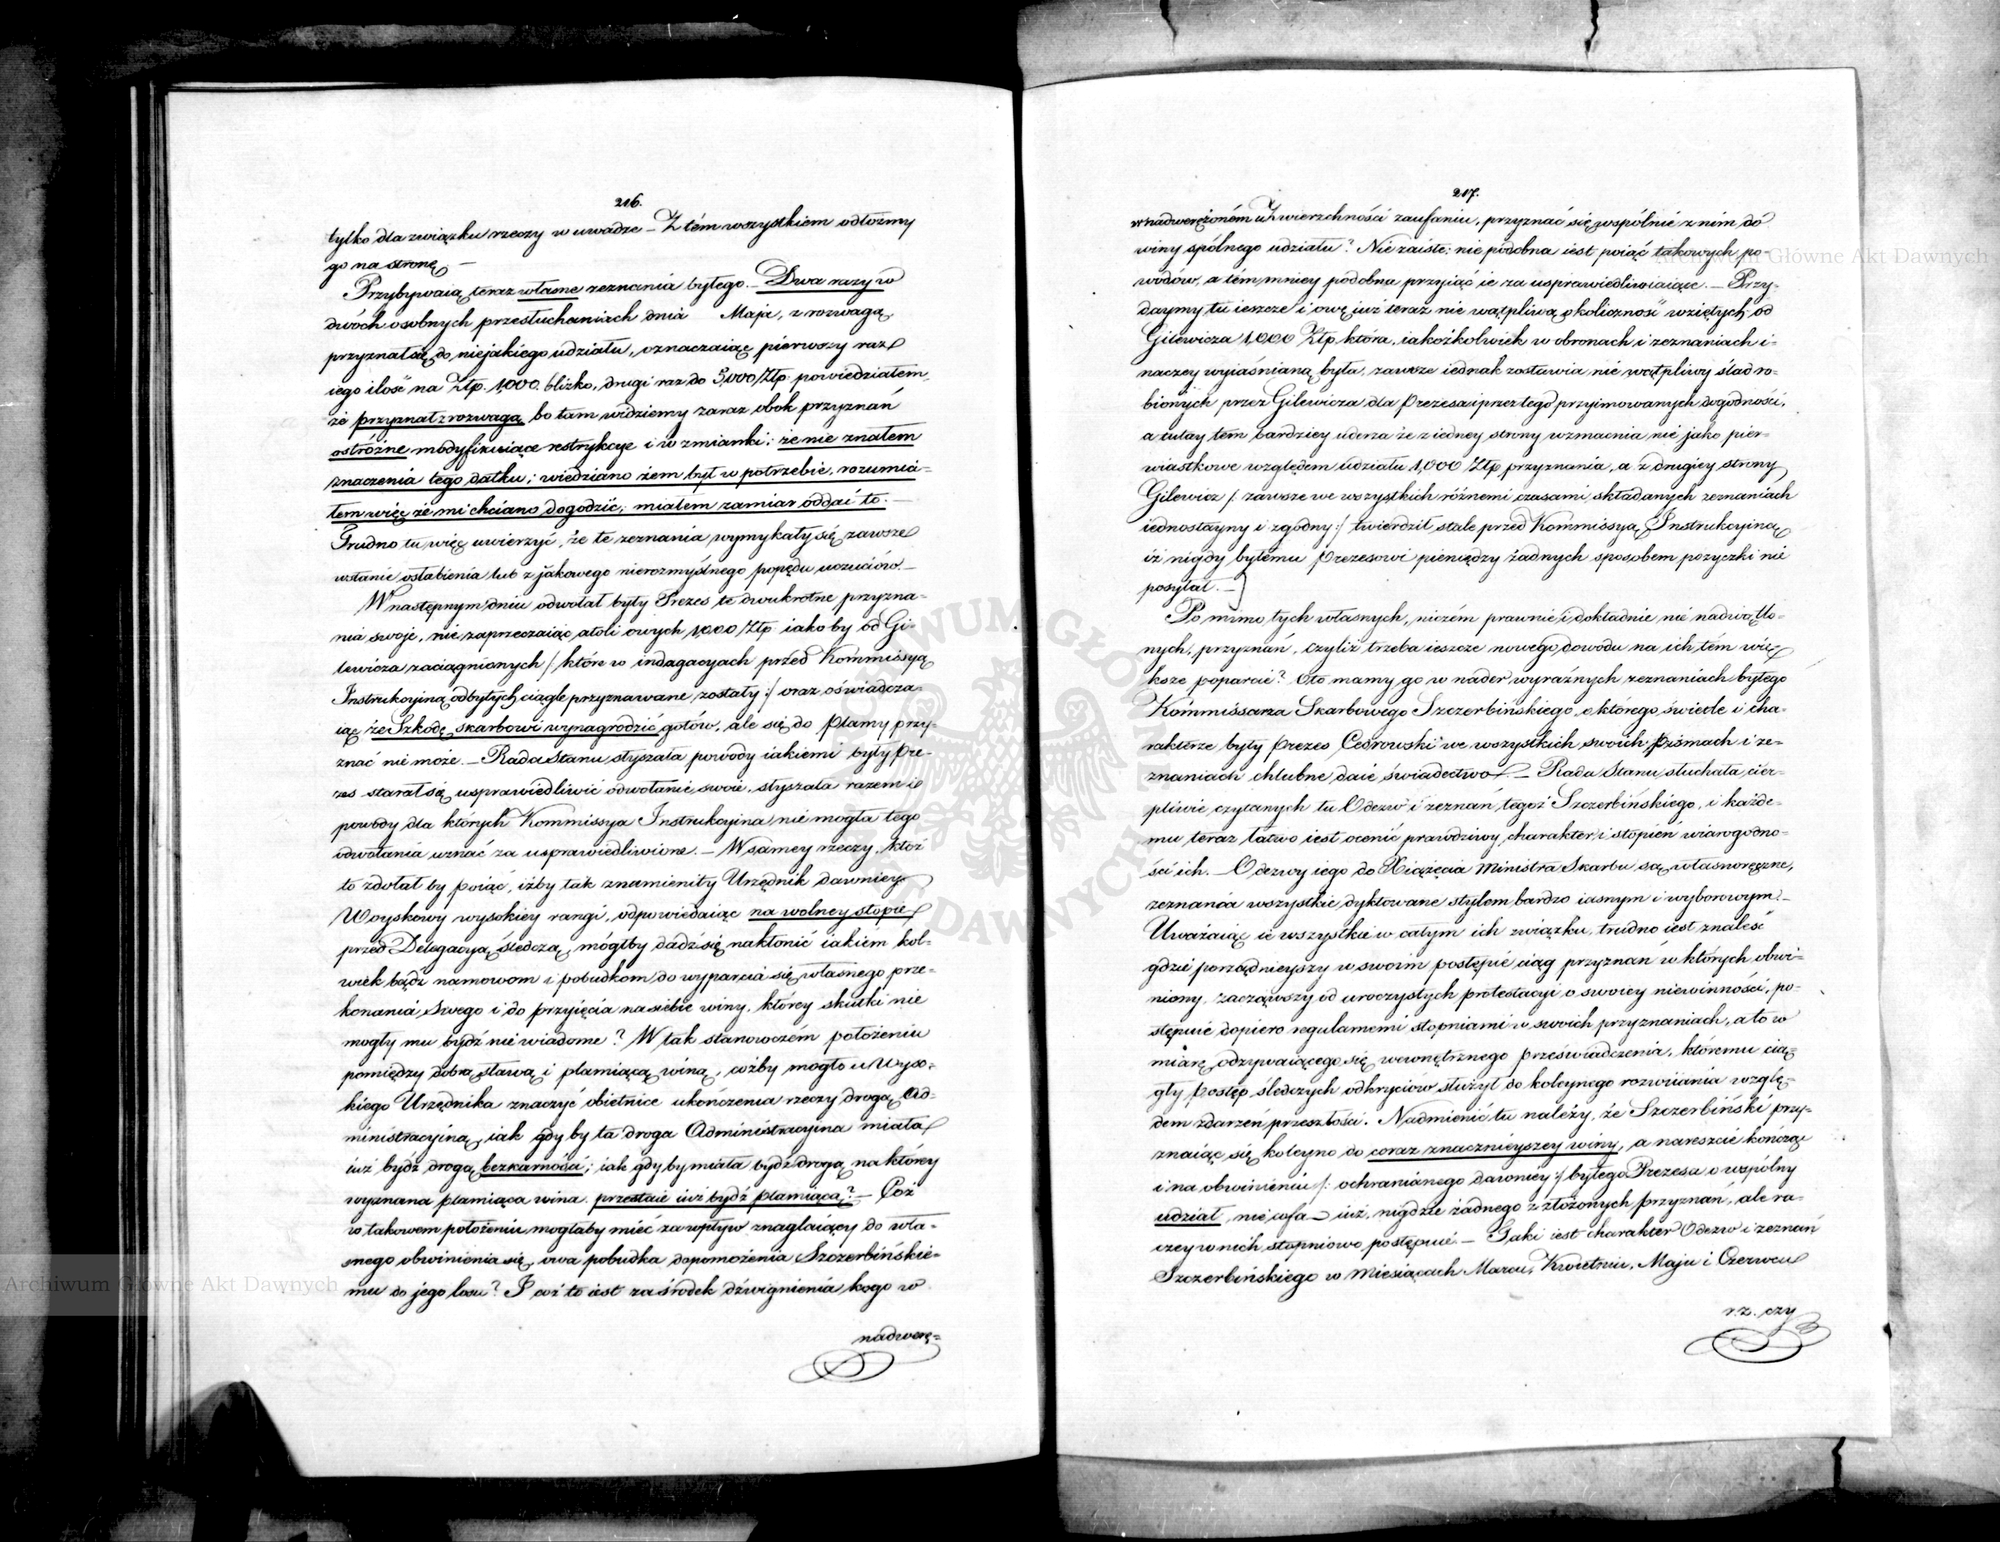 216.
tylko dla związku rzeczy w uwadze – Z tém wszystkiem odłożmy
go na stronę –
Przybywaią teraz własne zeznania byłego. – Dwa razy w
dwóch osobnych przesłuchaniach dnia Maja, z rozwagą
przyznał się do niejakiego udziału, oznaczaiąc pierwszy raz
iego ilość na Złp. 1,000. blizko, drugi raz do 5,000 Złp: powiedziałem,
że przyznał z rozwagą, bo tam widziemy zaraz obok przyznań
ostróżne modyfikuiące restrykcye i w zmianki; że nie znałem
znaczenia tego datku; wiedziano żem był w potrzebie, rozumia-
łem więc że mi chciano dogodzić; miałem zamiar óddać to. –
Trudno tu więc uwierzyć, że te zeznania wymykały się zawsze
w stanie osłabienia lub z jakowego nierozmyślnego popędu uczuciów. –
W następnym dniu odwołał były Prezes te dwukrotne przyzna-
nia swoje, nie zaprzeczaiąc atoli owych 1,000 Złp. iakoby od Gi-
lewicza zaciągnionych /: które w indagacyach przed Kommissyą
Instrukcyiną odbytych ciągle przyznawane zostały :/ oraz oświadcza-
iąc że Szkodę skarbowi wynagrodzić gotów, ale się do plamy przy-
znać nie może. – Rada Stanu słyszała powody iakiemi były Pre-
zes starał się usprawiedliwić odwołanie swoie, słyszała razem i
powody dla których Kommissya Instrukcyina nie mogła tego
odwołania uznać za usprawiedliwione. – W samey rzeczy, któż
to zdołał by poiąć, iżby tak znamienity Urzędnik dawniey
Woyskowy wysokiey rangi, odpowiedaiąc na wolney stopie
przed Delegacyą śledczą, mógłby dadź się nakłonić iakiém kol-
wiek bądź namowom i pobudkom do wyparcia się własnego prze-
konania swego i do przyięcia na siebie winy, którey skutki nie
mogły mu bydź nie wiadome? W tak stanowczém położeniu
pomiędzy dobrą sławą i plamiącą winą, cożby mogło u Wyso-
kiego Urzędnika znaczyć obietnice ukończenia rzeczy drogą Ad-
ministracyiną, iak gdyby ta droga Administracyina miała
iuż bydź drogą bezkarności; iak gdyby miała bydź drogą na którey
wyznana plamiąca wina, przestaie iuż bydź plamiącą? – Coż
w takowem położeniu mogłaby mieć za wpływ znaglaiący do wła-
snego obwinienia się, owa pobudka dopomożenia Szczerbińskie-
mu do jego losu? I coż to iest za środek dźwignienia kogo w
nadwerę-
217.
w nadwerężoném u Zwierzchności zaufaniu, przyznać się wspólnie z nim dó
winy spólnego udziału? Nie zaiste; nie podobna iest poiąć takowych po-
wodów, a tém mniey podobna przyiąć ie za usprawiedliwiaiące. – Przy-
daymy tu ieszcze i owę iuż teraz nie wątpliwą okoliczność wziętych od
Gilewicza 1,000 Złp. która, iakożkolwiek w obronach i zeznaniach i-
naczey wyiaśnianą była, zawsze iednak zostawia nie wątpliwy ślad ro-
bionych przez Gilewicza dla Prezesa i przez tego przyimowanych dogodności,
a tutay tem bardziey uderza że z iedney strony wzmacnia nie jako pier-
wiastkowe względem udziału 1,000 Złp. przyznania, a z drugiey strony
Gilewicz /: zawsze we wszystkich różnemi czasami składanych zeznaniach
iednostayny i zgodny :/ twierdził stale przed Kommissyą Instrukcyiną
iż nigdy byłemu Prezesowi pieniędzy żadnych sposobem pożyczki nie
posyłał. –
Po mimo tych własnych, niczém prawnie i dokładnie nie nadwątlo-
nych, przyznań, czyliż trzeba ieszcze nowego dowodu na ich tém wię-
ksze poparcie? Oto mamy go w nader wyraźnych zeznaniach byłego
Kommissarza Skarbowego Szczerbińskiego, o którego świetle i cha-
rakterze były Prezes Cedrowski we wszystkich swoich pismach i ze-
znaniach chlubne daie świadectwo. – Rada Stanu słuchała cier-
pliwie czytanych tu Odezw i zeznań tegoż Szczerbińskiego, i każde-
mu teraz łatwo iest ocenić prawdziwy charakter i stopień wiarogodno-
ści ich. – Odezwy iego do Xiążęcia Ministra Skarbu są własnoręczne,
zeznania wszystkie dyktowane stylem bardzo iasnym i wyborowym. –
Uważaiąc ie wszystkie w całym ich związku, trudno iest znaleść
gdzie porządnieyszy w swoim postępie ciąg przyznań w których obwi-
niony, zacząwszy od uroczystych protestacyi o swoiey niewinności, po-
stępuie dopiero regularnemi stopniami w swoich przyznaniach, a to w
miarę odzywaiącego się wewnętrznego przeświadczenia, któremu cią-
gły postęp śledczych odkryciów służył do koleynego rozwiiania wzglę-
dem zdarzeń przeszłości. Nadmienić tu należy, że Szczerbiński przy-
znaiąc się koleyno do coraz znacznieyszey winy, a nareszcie kończąc
i na obwinieniu /: ochranianego dawniey :/ byłego Prezesa o wspólny
udział, nie cofa iuż nigdzie żadnego z złożonych przyznań, ale ra-
czey w nich stopniowo postępuie – Taki iest charakter Odezw i zeznań
Szczerbińskiego w Miesiącach Marcu, Kwietniu, Maju i Czerwcu
r.z. czy
Archiwum Główne Akt Dawnych
Archiwum Główne Akt Dawnych